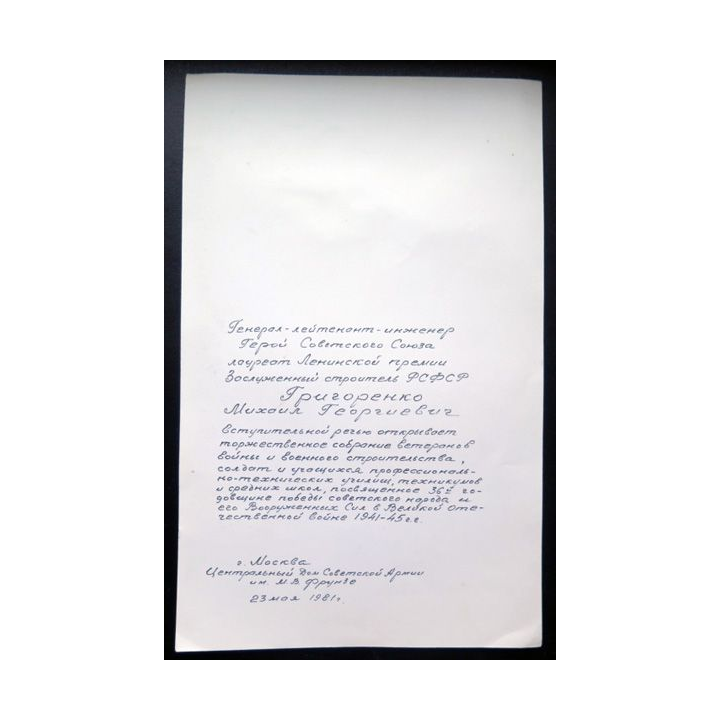 Генерал-лейтенант-инженер
Герой Советского Союза
лауреат Ленинской премии
Заслуженный строитель РСФСР
Григоренко
Михаил Георгиевич
вступительной речью открывает
торжественное собрание ветеранов
войны и военного строительства,
солдат и учащихся профессиональ-
но-технических училищ, техникумов
и средних школ, посвященное 36й го-
довщине победы советского народа и
его Вооруженных Сил в Великой Оте-
чественной войне 1941-45г.г.
г. Москва
Центральный Дом Советской Армии
им. М.В. Фрунзе
23 мая 1981г.